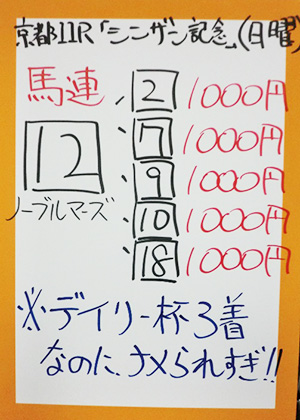 京都11R「シンザン記念」(日曜)
馬連
12
ノーブルマーズ
2 1000円
7 1000円
9 1000円
10 1000円
18 1000円
※デイリー杯3着
なのに、ナメられすぎ!!